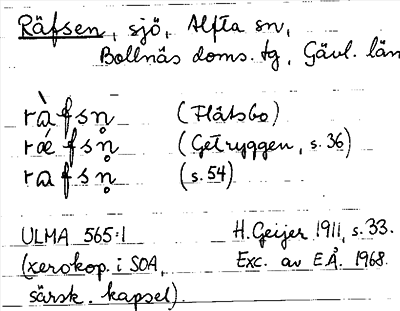 Räfsen, sjö, Alfta sn,
Bollnäs doms. tg, Gävl. län
ràfsn̥ (Flåtsbo)
rǽfsn̥ (Getryggen, s. 36)
rafsn̥ (s. 54)
ULMA 565:1 H. Geijer 1911, s. 33.
(xerokop. i SOA, Exc. av E.Å. 1968
särsk. kapsel).